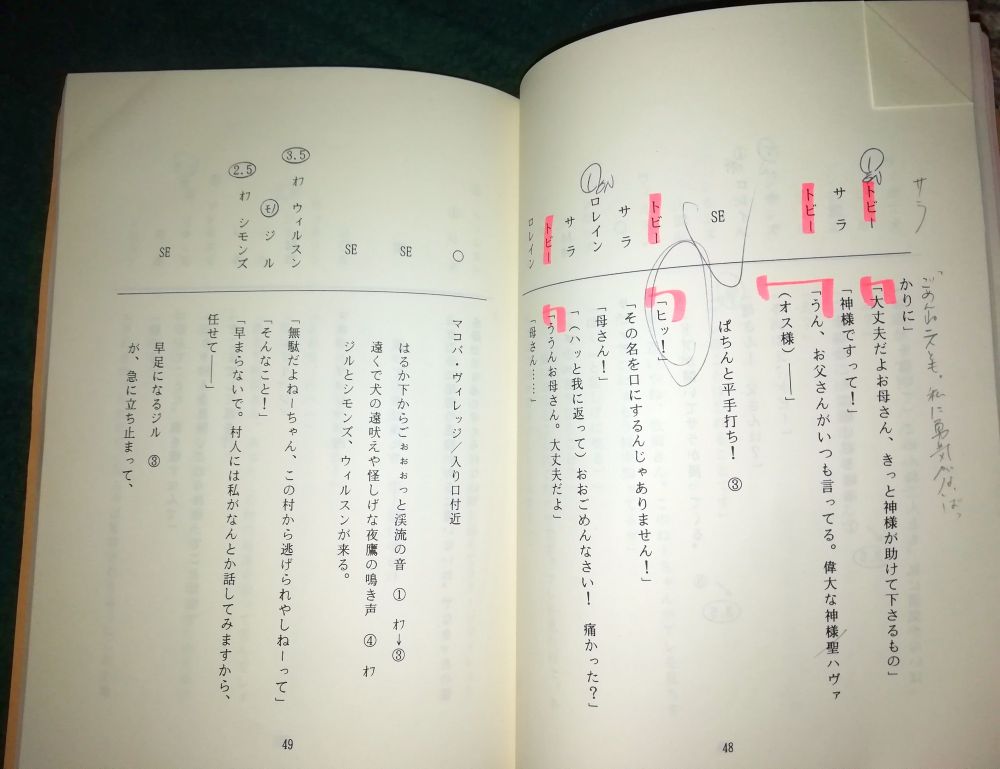 サラ
「ごめん
かりに」
① トビー 「大丈夫だよお母さん、きっと神様が助けて下さるもの」
サラ 「神様ですって！」
トビー 「うん、お父さんがいつも言ってる。偉大な神様聖ハヴァ
(オス様)――」
SE ぱちんと平手打ち！ ③
トビー 「ヒッ！」
サラ 「その名を口にするんじゃありません！」
① ロレイン 「母さん！」
サラ 「(ハッと我に返って)おおごめんなさい！ 痛かった？」
トビー 「ううんお母さん。大丈夫だよ」
ロレイン 「母さん……」
48
○ マコバ・ヴィレッジ／入り口付近
SE はるか下からごぉぉぉっと渓流の音 ① ｵﾌ→③
SE 遠くで犬の遠吠えや怪しげな夜鷹の鳴き声 ④ ｵﾌ
ジルとシモンズ、ウィルスンが来る。
3.5 ｵﾌ ウィルスン 「無駄だよねーちゃん、この村から逃げられやしねーって」
ﾓﾉ ジル 「そんなこと！」
2.5 ｵﾌ シモンズ 「早まらないで。村人には私がなんとか話してみますから、
任せて――」
SE 早足になるジル ③
が、急に立ち止まって、
49